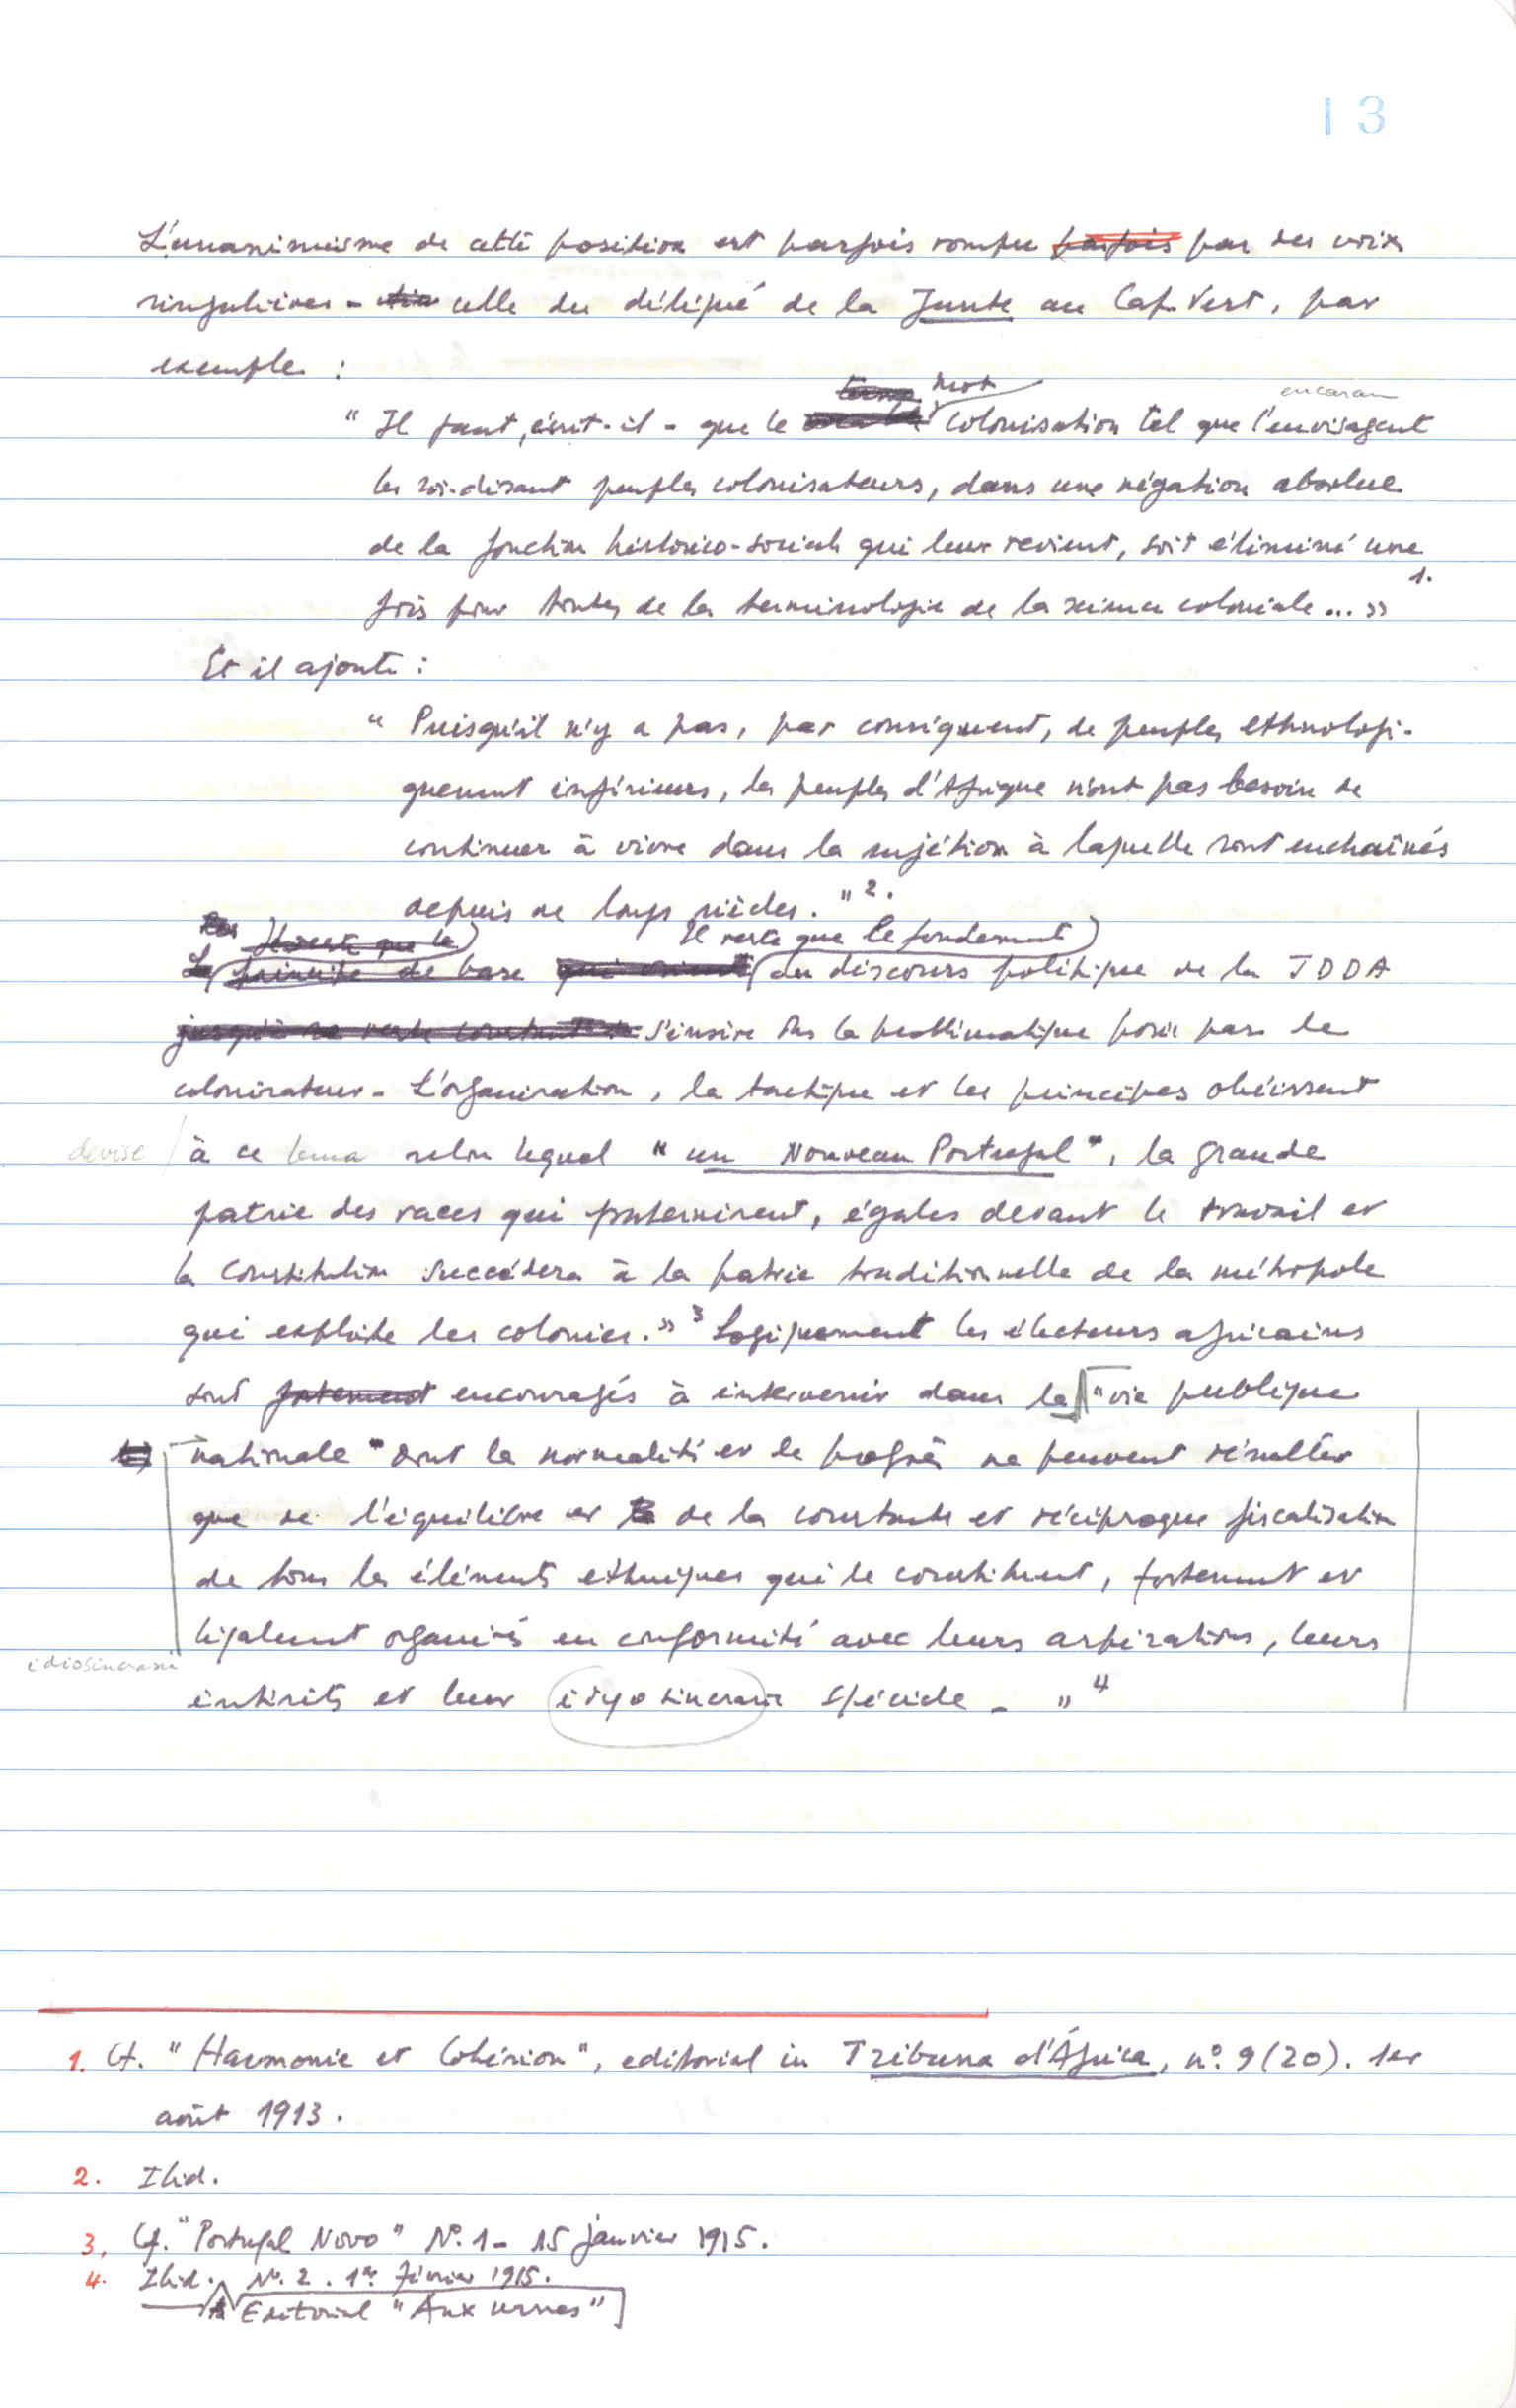 13
L'unanimisme de cette position est parfois rompu parfois par des voix
singulières - celle du délégué de la Junte au Cap-Vert, par
exemple :
terme mot encaram
" Il faut, écrit-il - que le colonisation tel que l'envisagent
les soi-disant peuples colonisateurs, dans une négation absolue
de la fonction historico-sociale qui leur revient, soit éliminé une
fois pour toutes de la terminologie de la science coloniale... » 1.
Et il ajoute :
" Puisqu'il n'y a pas, par conséquent, de peuples ethnologi-
quement inférieurs, les peuples d'Afrique n'ont pas besoin de
continuer à vivre dans la sujétion à laquelle sont enchaînés
depuis de longs siècles. " 2.
Il reste que le Il reste que le fondement
Le principe de base qui oriente du discours politique de la JDDA
s'insère ds la problématique posée par le
colonisateur - L'organisation, la tactique et les principes obéissent
devise / à ce lema selon lequel " un Nouveau Portugal ", la grande
patrie des races qui fraternisent, égales devant le travail et
la Constitution succédera à la patrie traditionnelle de la métropole
qui exploite les colonies. » 3 Logiquement les électeurs africains
sont fortement encouragés à intervenir dans la "vie publique
nationale " dont la normalité et le progrès ne peuvent résulter
que de l'équilibre et de la constante et réciproque fiscalisation
de tous les éléments ethniques qui le constituent, fortement et
légalement organisés en conformité avec leurs aspirations, leurs
idiosincrasie
intérêts et leur idyosincrasie spéciale - " 4
1. Cf. " Harmonie et Cohésion ", editorial in Tribuna d'África, nº. 9 (20). 1er
août 1913.
2. Ibid.
3. Cf. "Portugal Novo" Nº. 1 - 15 janvier 1915.
4. Ibid. Nº. 2. 1er Février 1915.
Editorial "Aux urnes"]